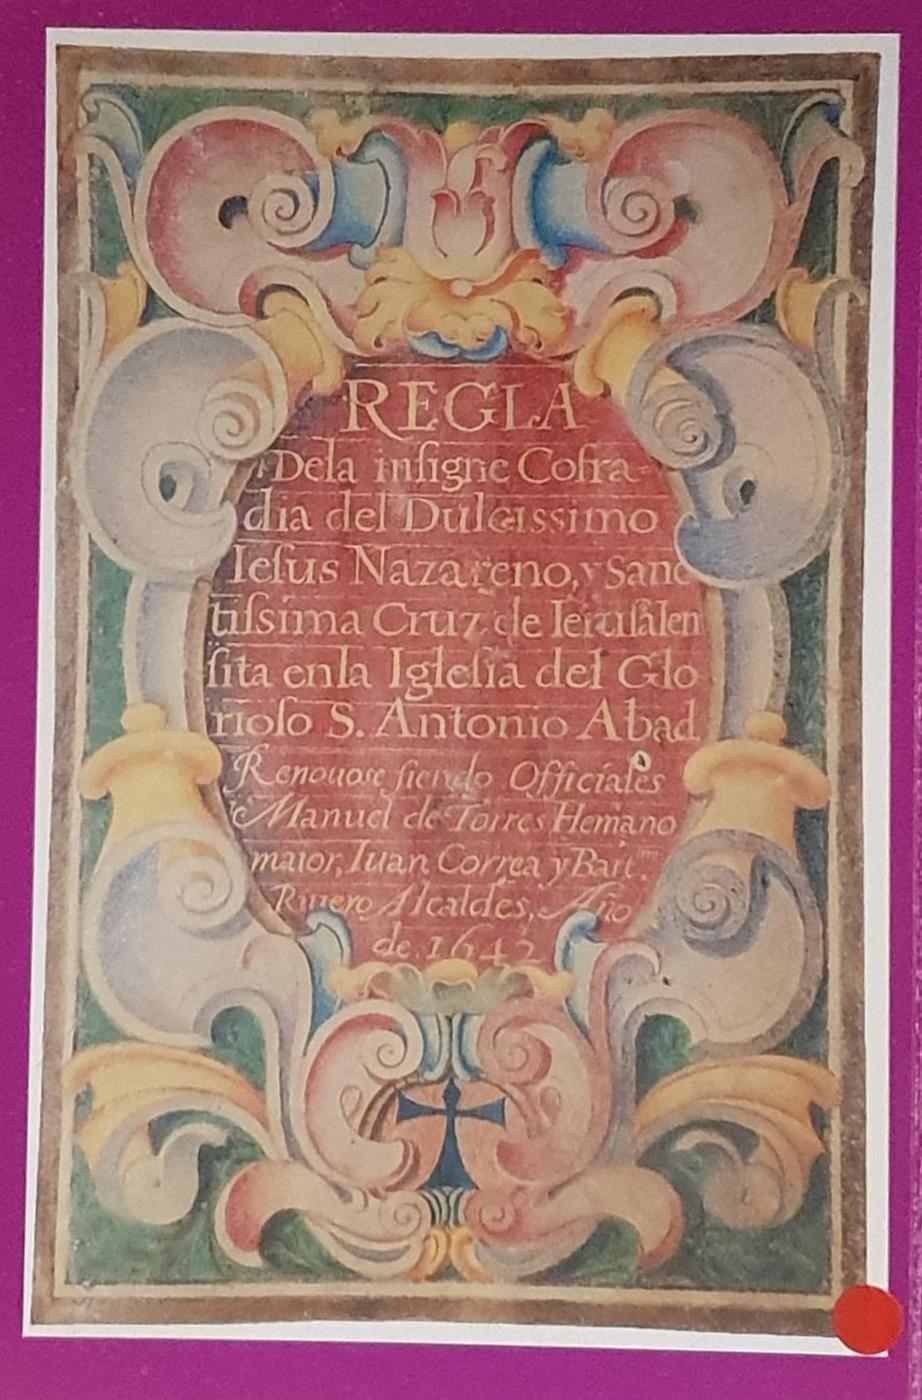 REGLA
Dela insigne Cofra-
dia del Dulcissimo
Iesus Nazareno, y Sanc
tissima Cruz de Ierusalen
sita enla Iglesia del Glo
rioso S. Antonio Abad
Renouose siendo Officiales
Manuel de Torres Hermano
maior, Iuan Correa y Bart.me
Riuero Alcaldes, Año
de.1642